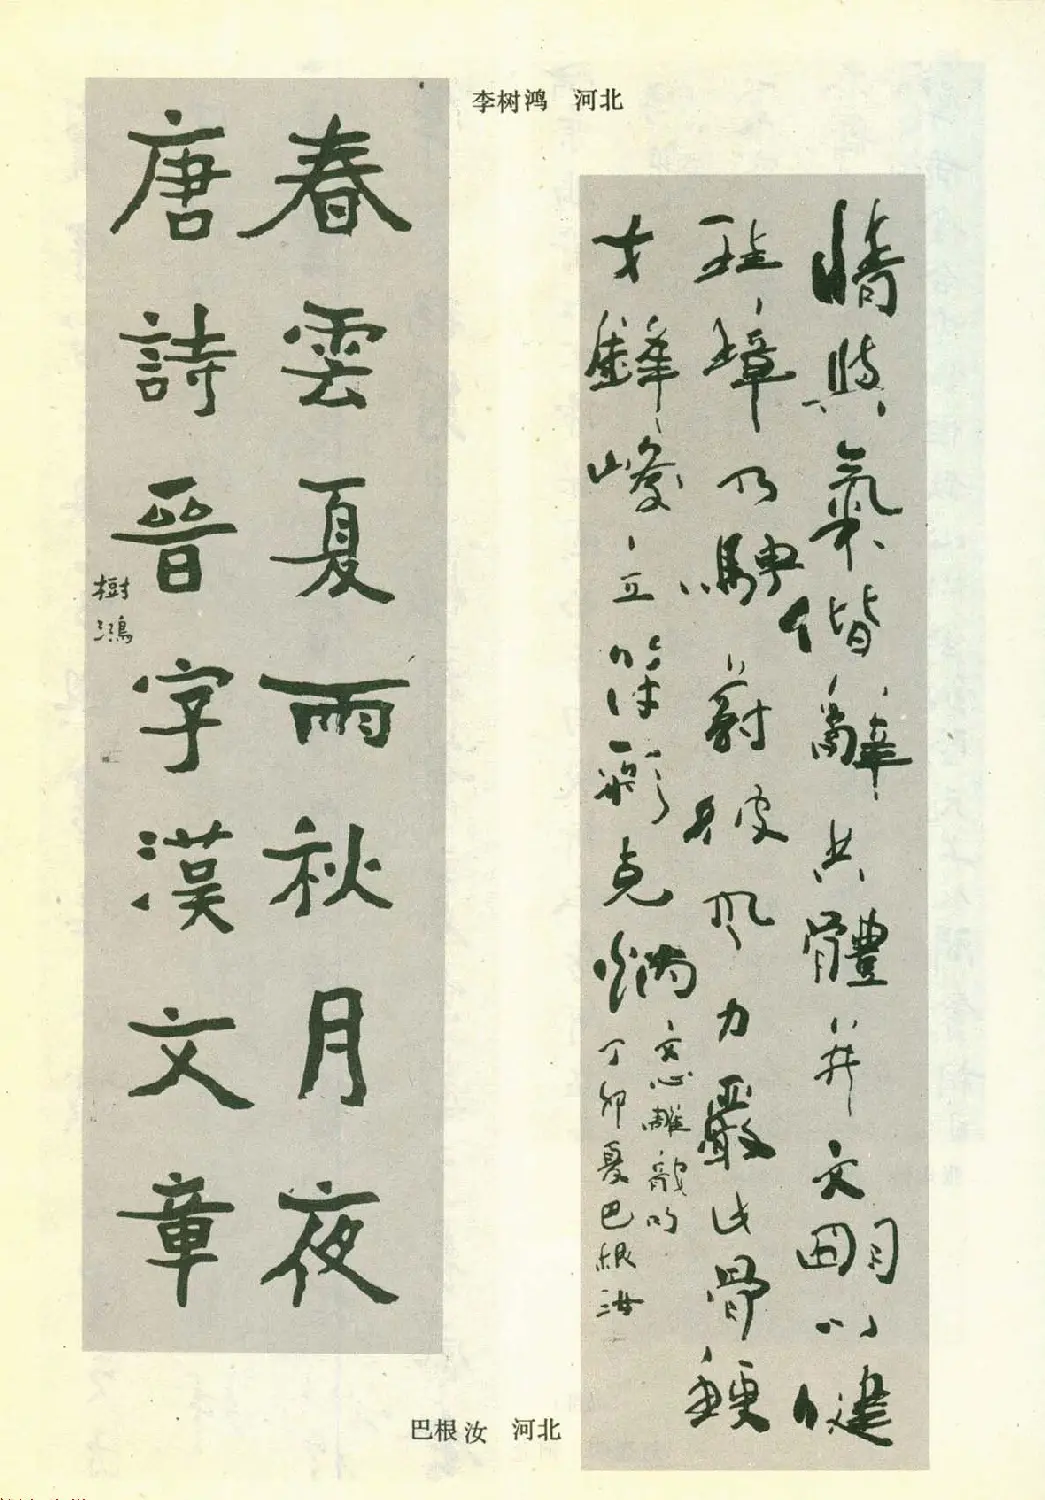 李树鸿 河北
春雲夏雨秋月夜
唐詩晉字漢文章
樹鴻
情與氣偕辭共體并文明以健
珪璋乃騁蔚彼風力嚴此骨鯁
才鋒峻立符彩克炳
文心雕龍句
丁卯夏巴根汝
巴根汝 河北